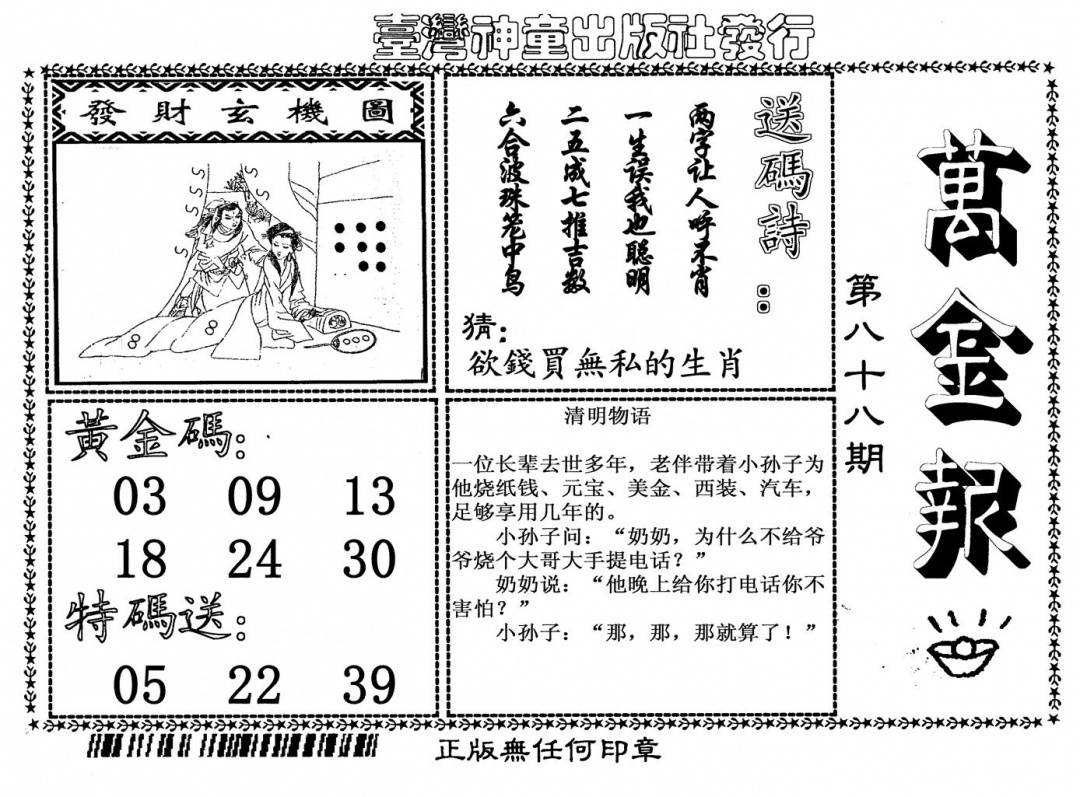 臺灣神童出版社發行
發財玄機圖
送碼詩：
两字让人呼不肖
一生误我也聪明
二五成七推吉数
六合波珠笼中鸟
猜：
欲錢買無私的生肖
萬金報
第八十八期
黃金碼：
03 09 13
18 24 30
特碼送：
05 22 39
清明物语
一位长辈去世多年，老伴带着小孙子为
他烧纸钱、元宝、美金、西装、汽车，
足够享用几年的。
小孙子问：“奶奶，为什么不给爷
爷烧个大哥大手提电话？”
奶奶说：“他晚上给你打电话你不
害怕？”
小孙子：“那，那，那就算了！”
正版無任何印章